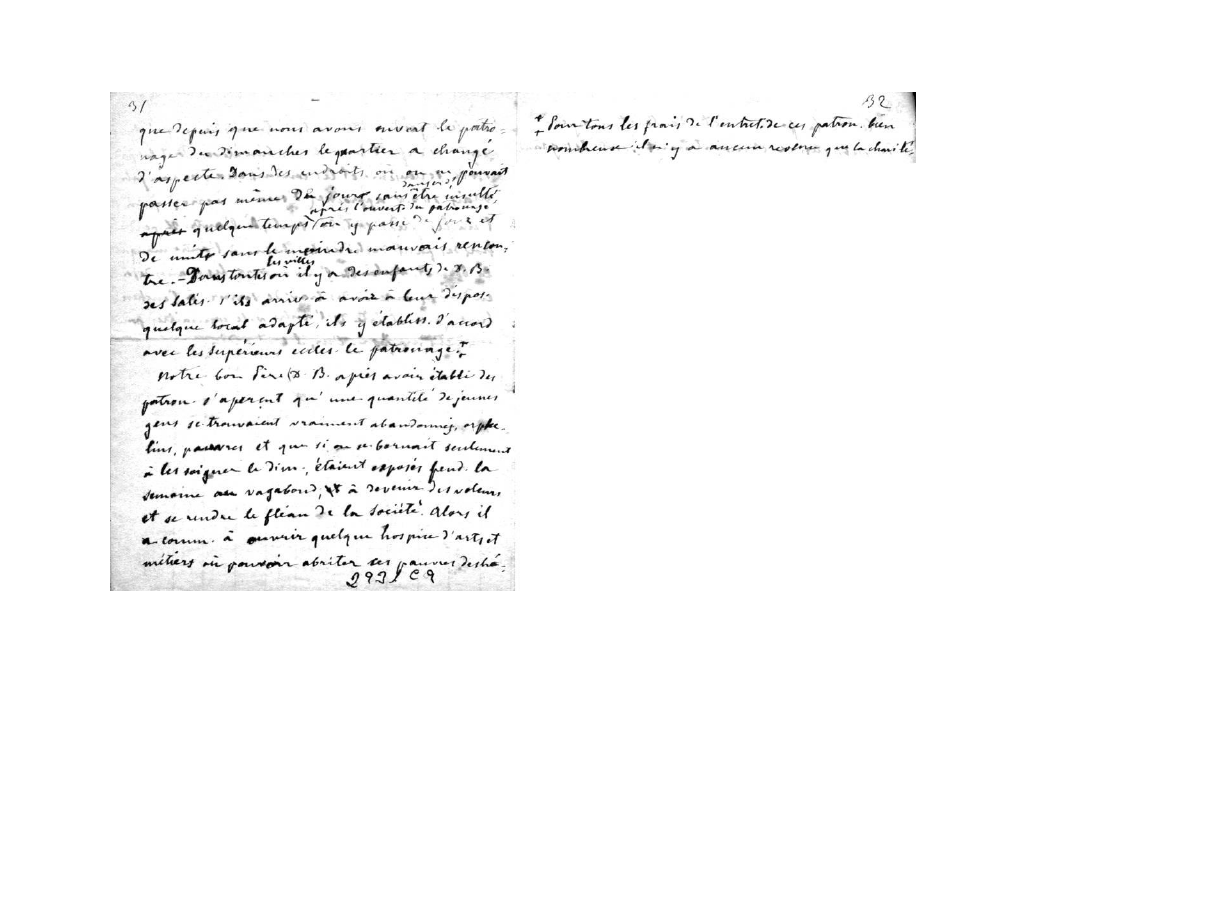 31
que depuis que nous avons ouvert le patro-
nage du dimanches le quartier a changé
d'aspecte. Dans des endroits où on ne pouvait
passer pas même de jour sans danger d' être insulté,
après quelque temps après l'ouvert. du patronage, on y passe de jour et
de nuits sans le moindre mauvais rencon-
tre. - Dans toutes les villes où il y a des enfants de D. B.
des Salés. s'ils arriv. à avoir à leur dispos.
quelque local adapté, ils y établiss. d'accord
avec les supérieurs eccles. le patronage. ‡
Notre bon Père (D. B. après avoir établi des
patron. s'aperçut qu'une quantité de jeunes
gens se trouvaient vraiment abandonnés, orphe-
lins, pauvres et que si on se bornait seulement
à les soigner le dim., étaient exposés pend. la
semaine au vagabond, et à devenir des voleurs
et se rendre le fléau de la société. Alors il
a comm. à ouvrir quelque hospice d'arts et
métiers où pouvoir abriter ses pauvres deshé-
2931 C9
32
‡ Pour tous les frais de l'entret. de ces patron. bien
nombreux il n'y a aucun que la charité.